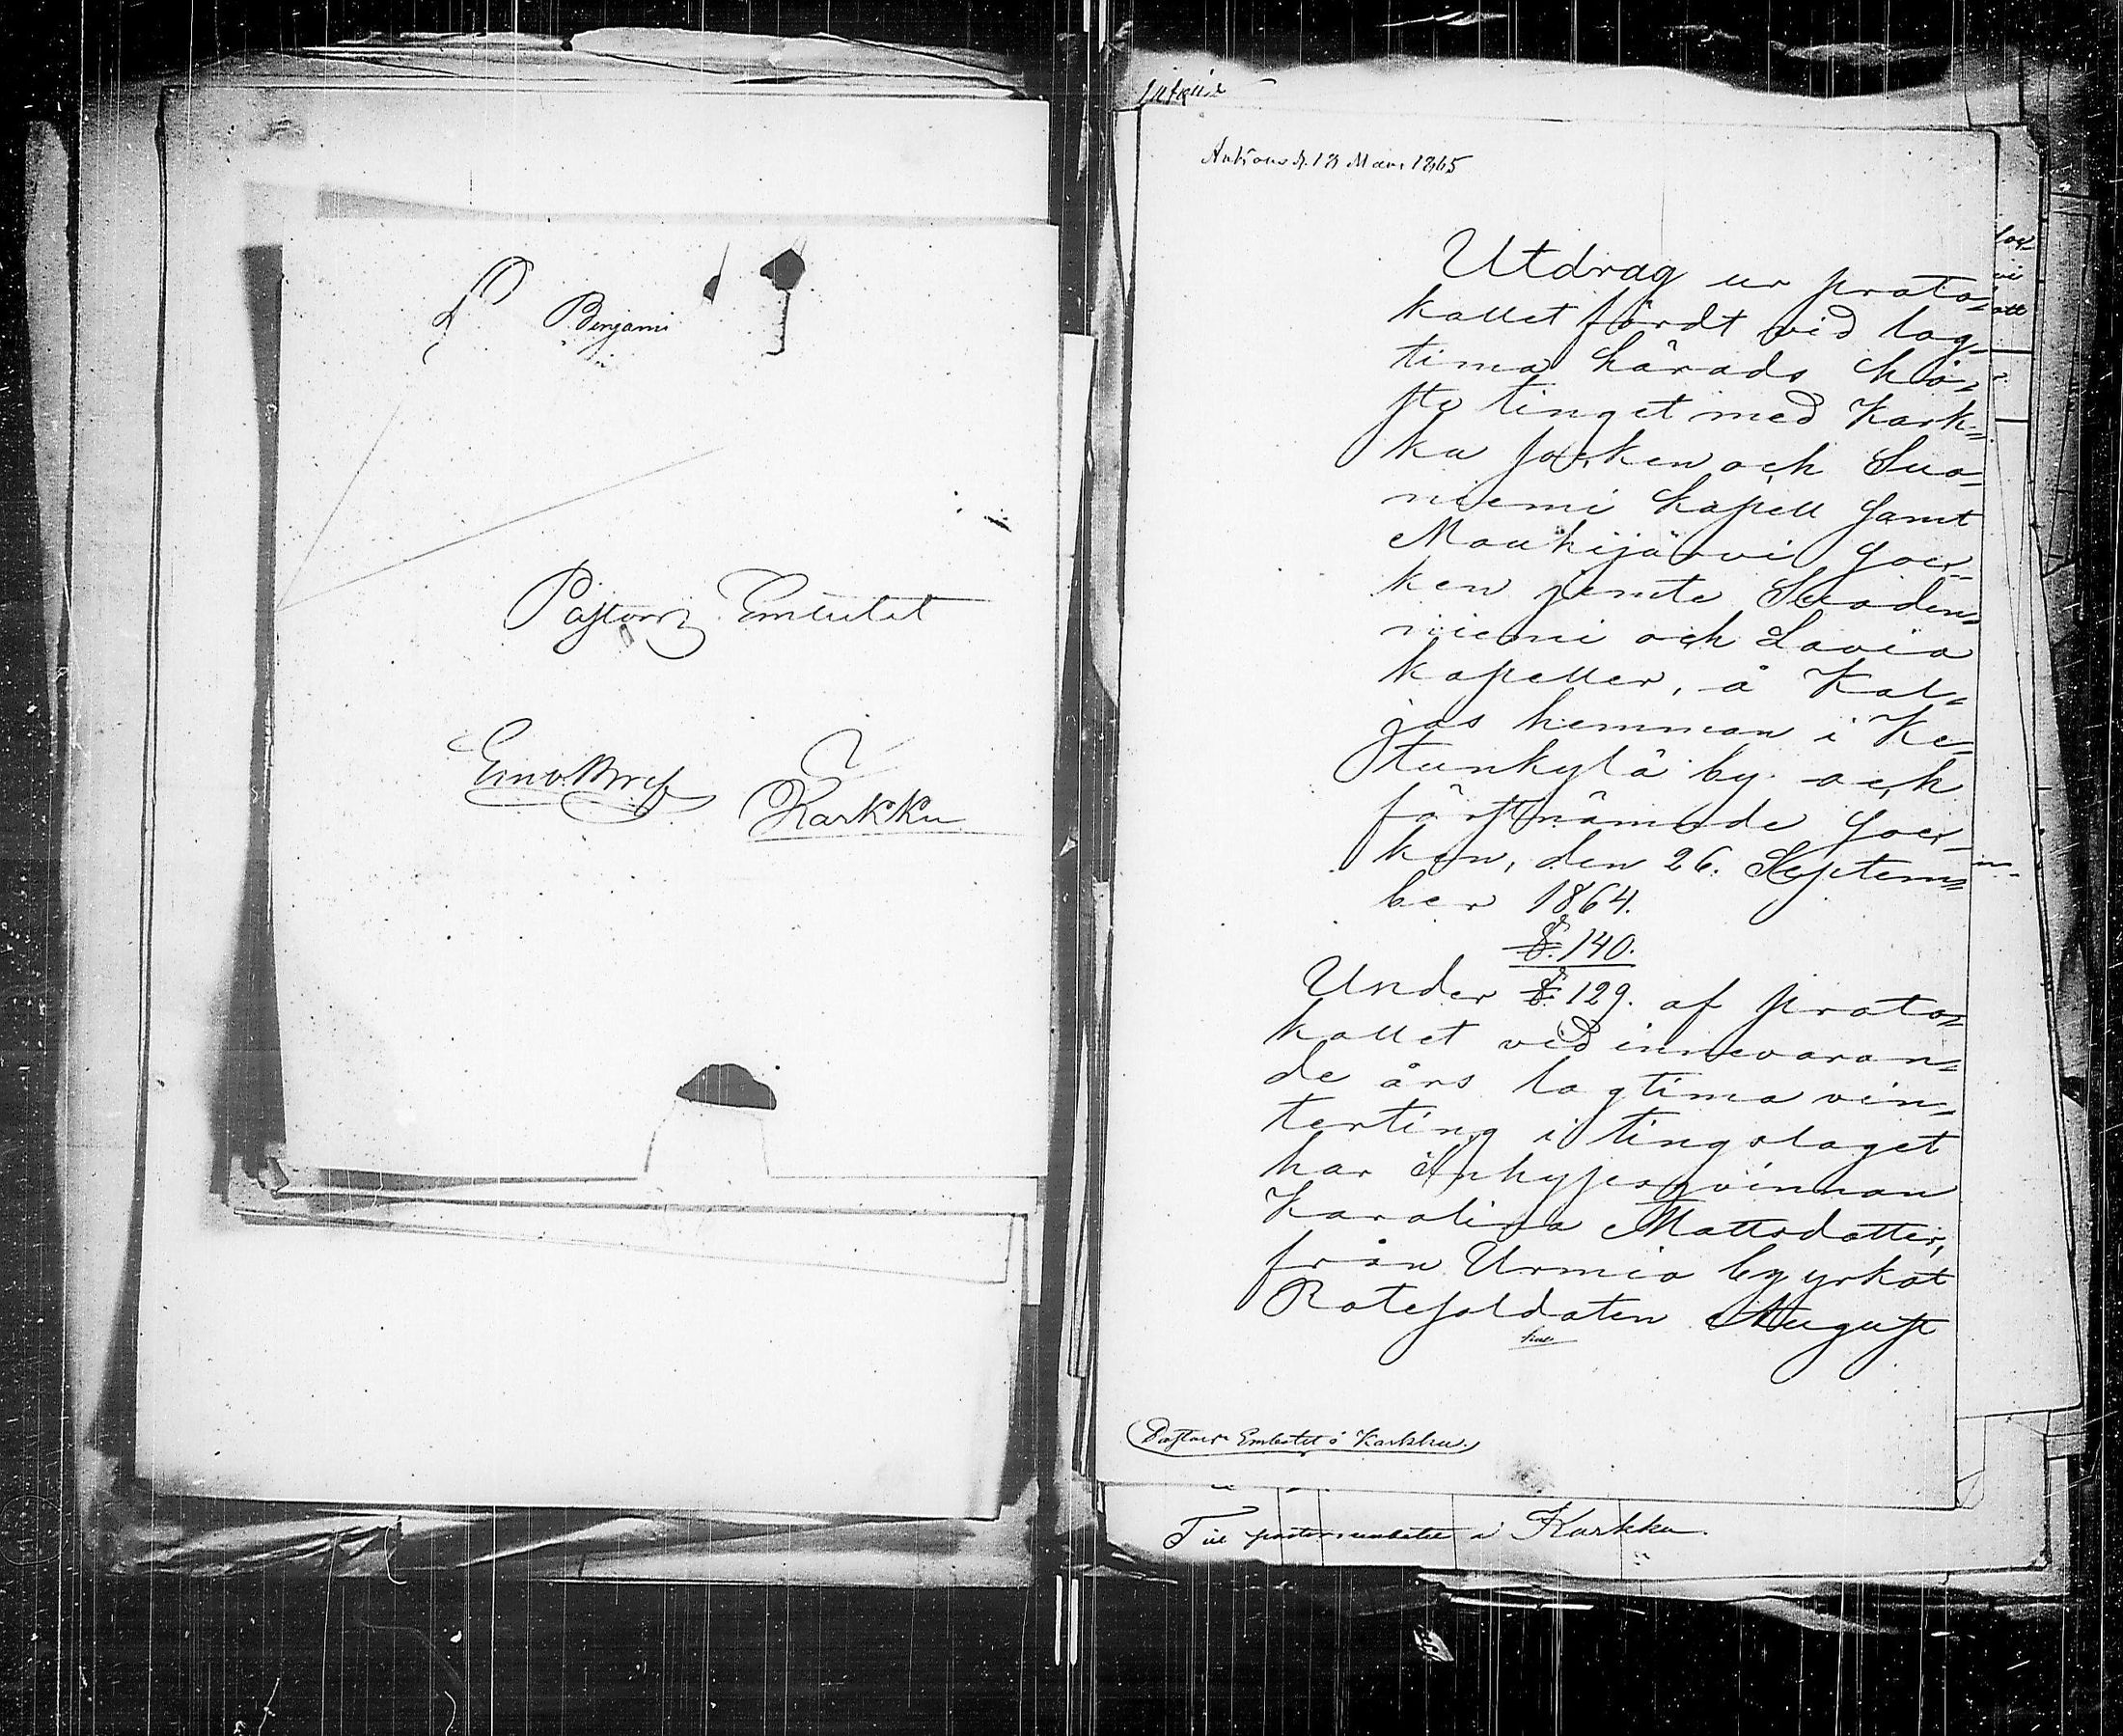 Benjami
Pastors Embetet
i
Embr. Bref
Karkku
d. 18 Mars 1865
Utdrag ur proto-
kollet fördt vid lag-
tima härads hö-
ste tinget med Kark-
ku socken och Suo-
niemi kapell samt
Mouhijärvi soc-
ken jemte Suoden-
niemi och Lavia
kapeller, å Kal-
jas hemman i Ke-
tunkylä by och
förstnämnde soc-
ken, den 26. Septem-
ber 1864.
§. 140.
Under § 129. af proto-
kollet vid innevaran-
de års lagtima vin-
terting i tingslaget
har Inhyseqvinnan
Karolina Mattsdotter,
från Urmia by yrkat
Rotesoldaten August
Pastors Embetet i Karkku.
Til pastorsembetet i Karkku.